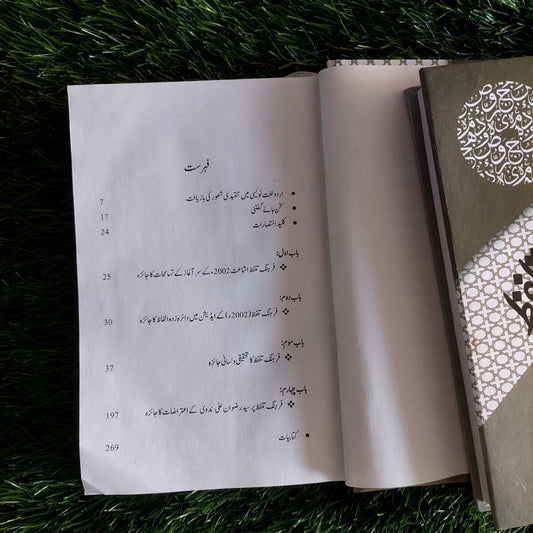 فہرست
اردو لغت نویسی میں تنقیدی شعور کی بازیافت 7
سخن ہائے گفتنی 17
کلید اختصارات 24
باب اول:
فرہنگ تلفظ اشاعت 2002ء کے سر آغاز کے تسامحات کا جائزہ 25
باب دوم:
فرہنگ تلفظ (2002ء) کے ایڈیشن میں دائرہ زدہ الفاظ کا جائزہ 30
باب سوم:
فرہنگ تلفظ کا تحقیقی و لسانی جائزہ 37
باب چہارم:
فرہنگ تلفظ پر سید رضوان علی ندوی کے اعتراضات کا جائزہ 197
کتابیات 269